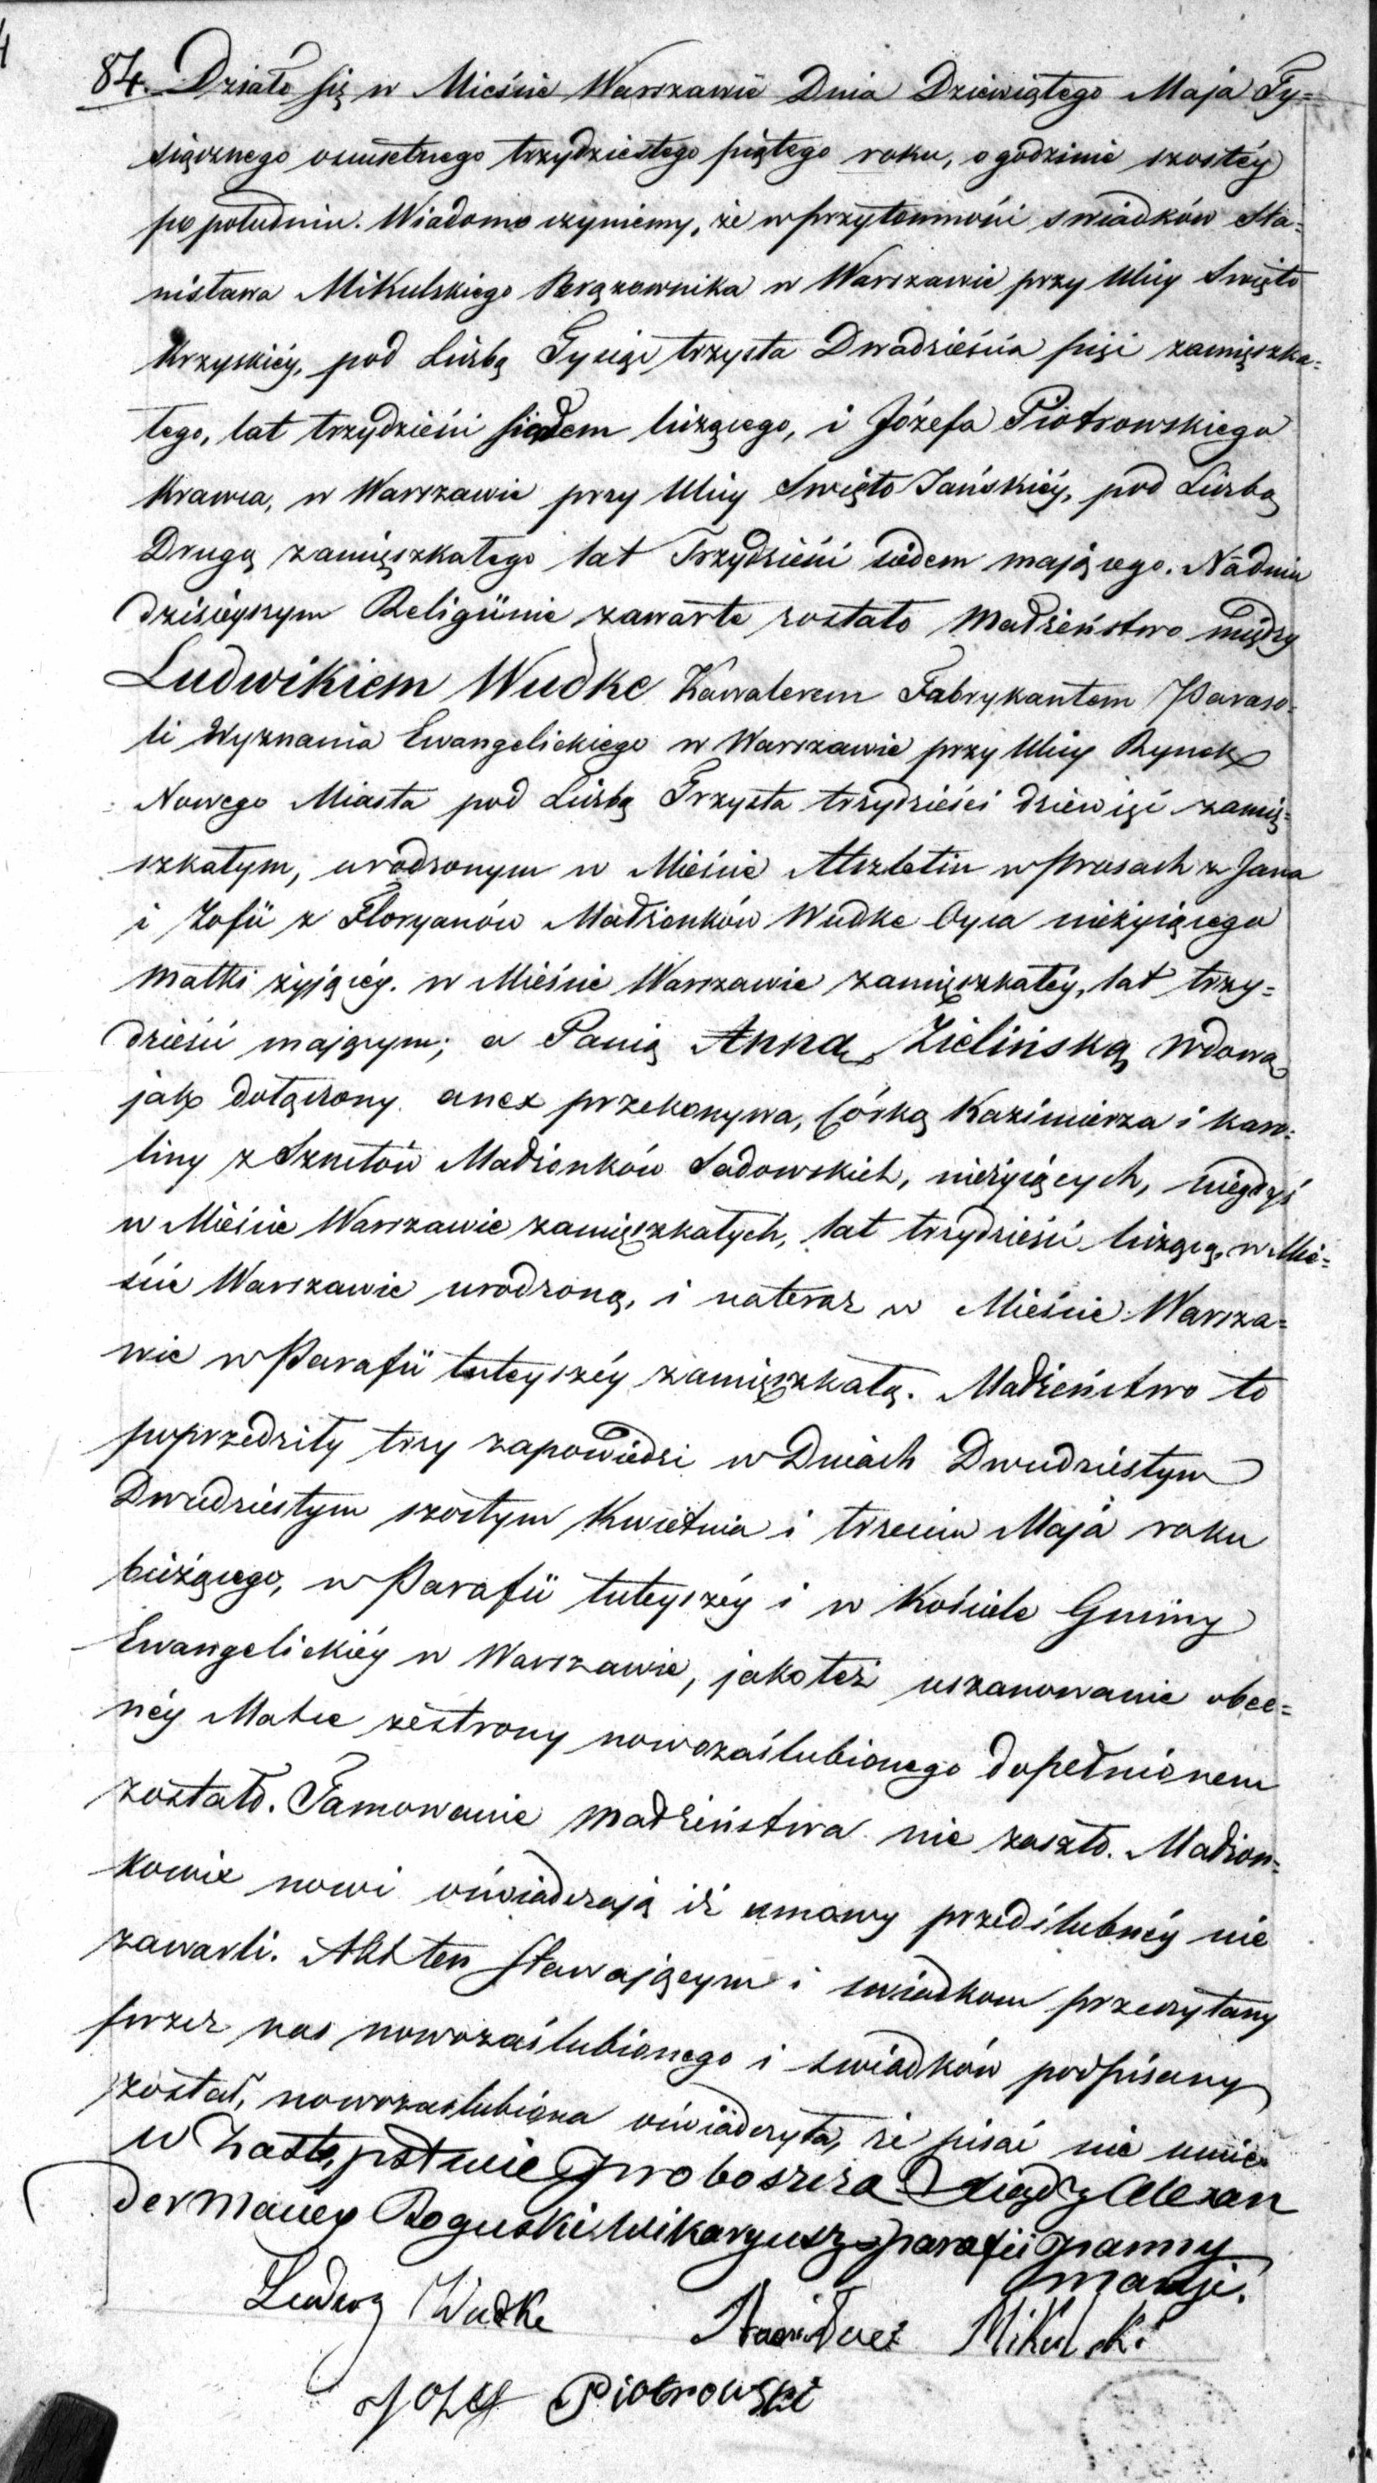 84. Działo się w Mieście Warszawie Dnia Dziewiątego Maja Ty=
siącznego osmsetnego trzydziestego piątego roku, o godzinie szostéy
po południu. Wiadomo czyniemy, że w przytomności swiadków Sta=
nisława Mikulskiego Brązownika w Warszawie przy Ulicy Swięto
Krzyskiéy, pod Liczbą Tysiąc trzysta Dwadzieścia pięć zamięszka=
łego, lat trzydzieści siedem liczącego, i Józefa Piotrowskiego
Krawca, w Warszawie przy Ulicy Swięto Jańskiéy, pod Liczbą
Drugą zamięszkałego lat Trzydzieści siedem mającego. Na dniu
dzisieyszym Religiinie zawarte zostało Małżeństwo między
Ludwikiem Wudke Kawalerem Fabrykantem Paraso=
li Wyznania Ewangelickiego w Warszawie przy Ulicy Rynek
Nowego Miasta pod Liczbą Trzysta trzydzieści dziewięć zamię=
szkałym, urodzonym w Mieście w Prusach z Jana
i Zofii z Floryanów Małżonków Wudke Oyca nieżyiącego
Matki żyjącéy. w Mieście Warszawie zamięszkałéy, lat trzy=
dzieści mającym; a Panią Anną Zielińską Wdową
jak dołączony anex przekonywa, Córką Kazimierza i Karo=
liny z Małżonków Sadowskich, nieżyiących, niegdyś
w Mieście Warszawie zamięszkałych, lat trzydzieści liczącą, w Mie=
ście Warszawie urodzoną, i nateraz w Mieście Warsza=
wie w Parafii tuteyszéy zamięszkałą. Małżeństwo to
poprzedziły trzy zapowiedzi w Dniach Dwudziestym
Dwudziestym szostym Kwietnia i trzecim Maja roku
bieżącego, w Parafii tuteyszéy i w Kościele Gminy
Ewangelickiéy w Warszawie, jako też uszanowanie obec=
néy Matce ze strony nowozaślubionego dopełnionem
zostało. Tamowanie Małżeństwa nie zaszło. Małżon=
kowie nowi oświadczają iż umowy przedślubnéy nie
zawarli. Akt ten stawającym i swiadkom przeczytany
przez nas nowozaślubionego i swiadków podpisany
został, nowozaslubiona oświadczyła, że pisać nie umie
w Zastępstwie Proboszcza Xiądz Alexan
der Maciey Boguski Wikaryusz parafii Panny
Maryi.
Ludwig Wudke Stanisław Mikulski
Jozef Piotrowski